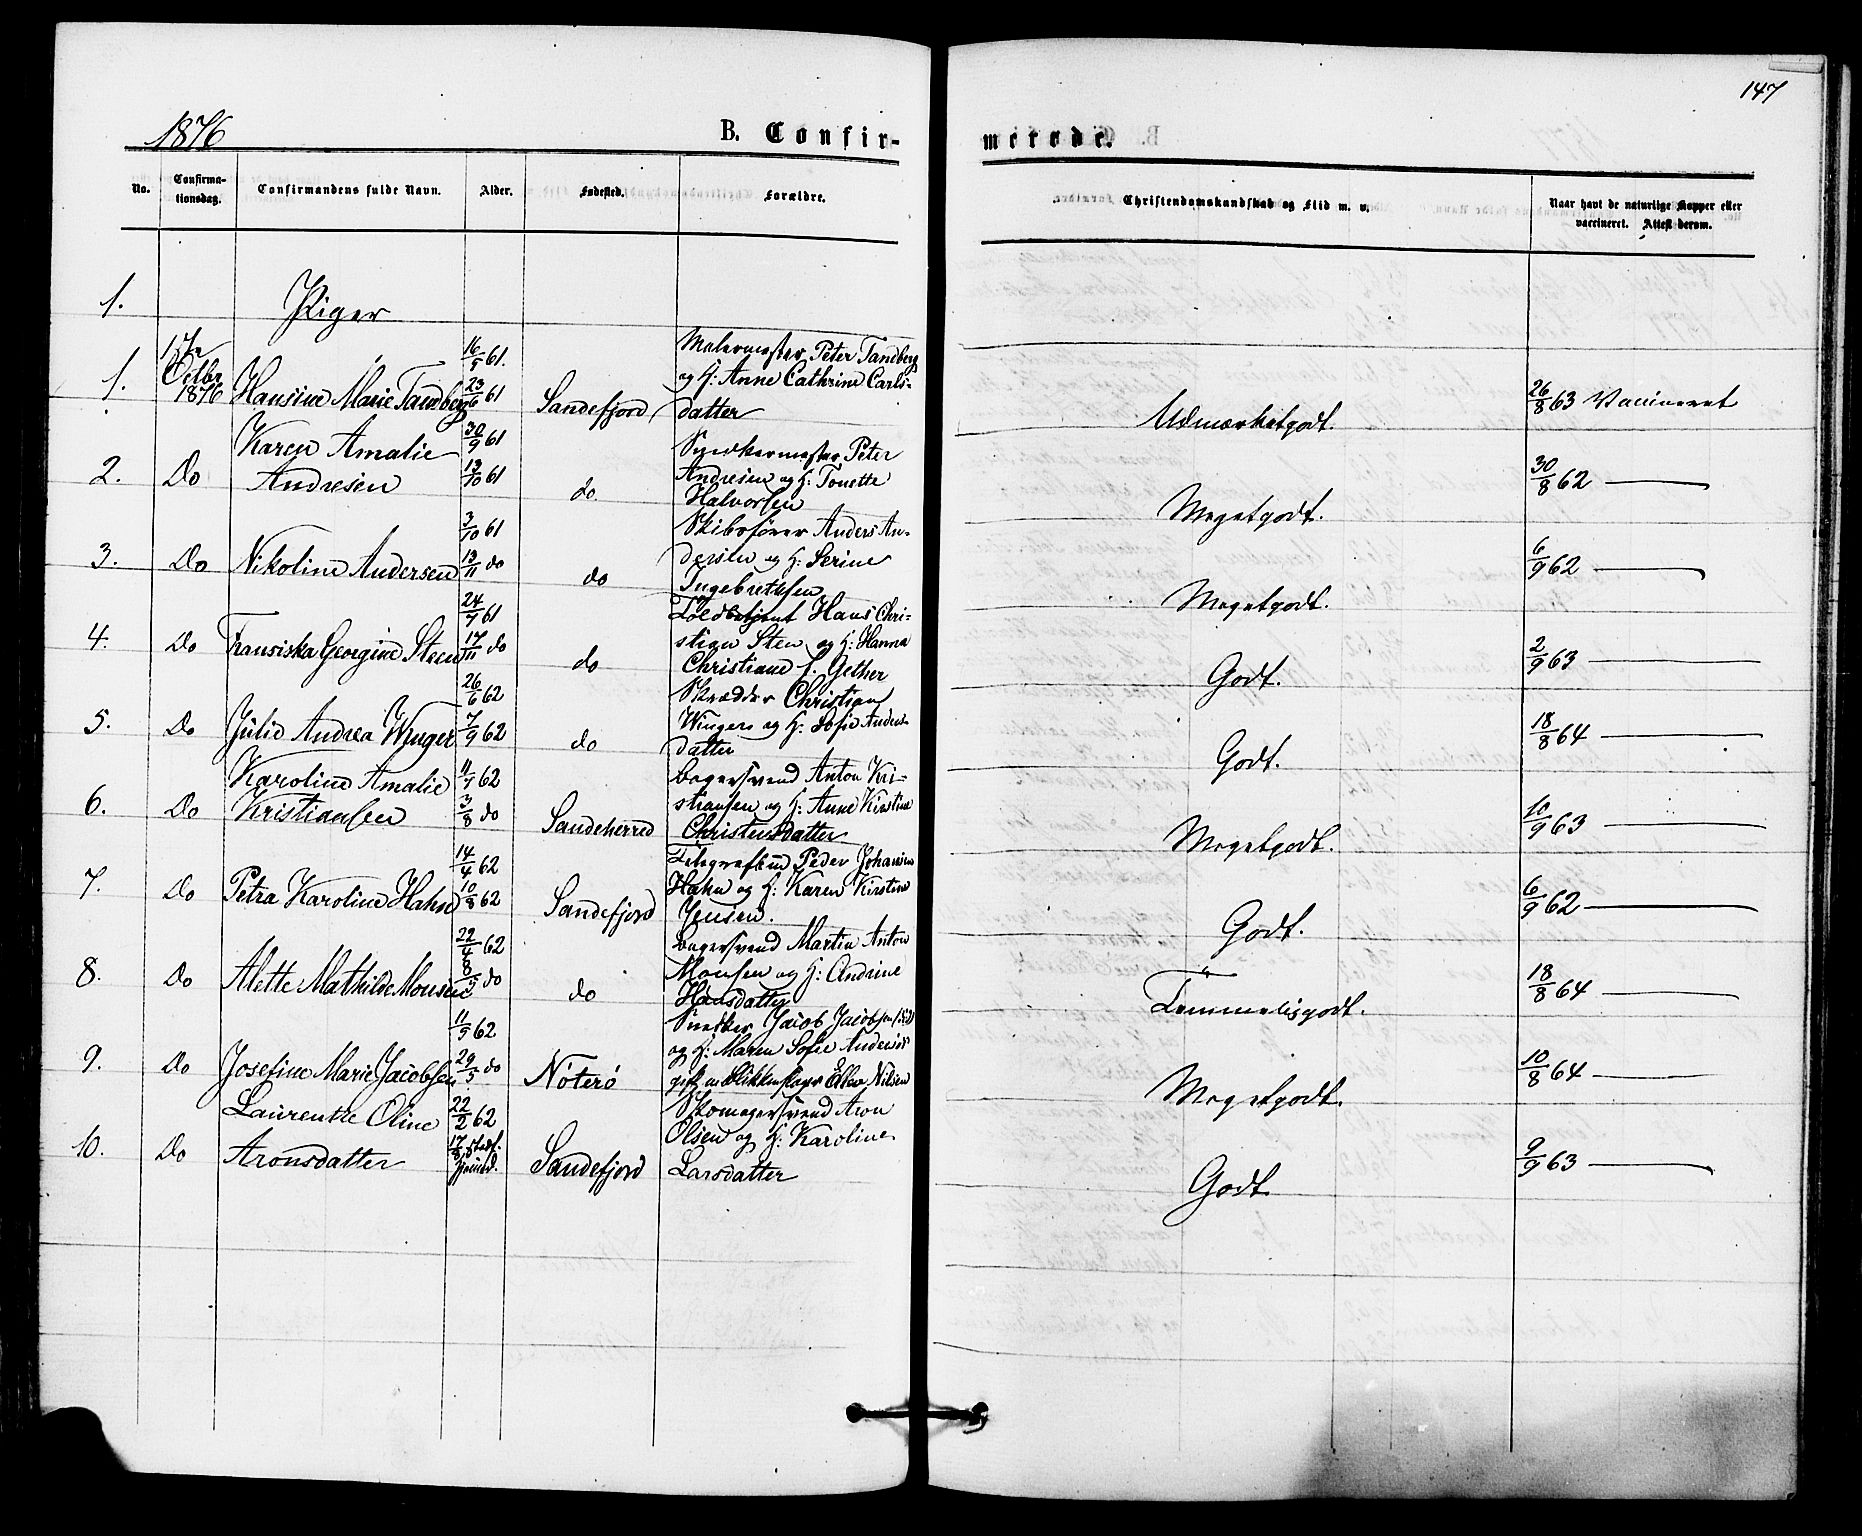 147
1876
B. Confir-
merede.
No.
Confirma-
tionsdag.
Confirmandens fulde Navn.
Alder.
Fødested.
Forældre.
Christendomskundskab og Flid m. v.
Naar havt de naturlige Kopper eller
vaccineret. Attest derom.
1. Piger
1. 17de Octbr 1876 Hansine Marie Tandberg 16/5 61. 23/6 61 Sandefjord
Malermester Peter Tandberg
og H: Anne Cathrine Carls-
datter
Udmærketgodt. 26/8 63 Vaccineret
2. Do Karen Amalie
Andresen 30/9 61 13/10 61 do
Snedkermester Peter
Andresen og H: Tonette
Halvorsen
Megetgodt. 30/8 62 —
3. Do Nikoline Andersen 3/10 61 13/11 do do
Skibsfører Anders An-
dersen og H: Serine
Ingebretsen
Megetgodt. 6/9 62 —
4. Do Fransiska Georgine Steen 24/7 61 17/11 do do
Toldbetjent Hans Chri-
stian Sten og H: Hanna
Christiane f. Gether
Godt. 2/9 63 —
5. Do Julie Andrea Winger 26/6 62 7/9 62 do
Skrædder Christian
Winger og H: Sofie Anders-
datter
Godt. 18/8 64 —
6. Do Karoline Amalie
Kristiansen 11/7 62 3/8 do Sandeherred
Bagersvend Anton Kri-
stiansen og H: Anne Kirstine
Christensdatter
Megetgodt. 10/9 63 —
7. Do Petra Karoline Hahn 14/4 62 10/8 62 Sandefjord
Telegrafbud Peder Johansen
Hahn og H: Karen Kirstine
Jensen.
Godt. 6/9 62 —
8. Do Alette Mathilde Monsen 22/4 62 8/5 do do
Bagersvend Martin Anton
Monsen og H: Andrine
Hansdatter
Temmeligodt. 18/8 64 —
9. Do Josefine Marie Jacobsen 11/5 62 29/5 do Nøterø
Snedker Jacob Jacobsen
og H: Maren Sofie Andersdr
gift m Blikkenslager Ellev Nilsen
Megetgodt. 10/8 64 —
10. Do Laurentze Oline
Aronsdatter 22/2 62 17/8 Sandefjord
Skomagersvend Aron
Olsen og H: Karoline
Larsdatter
Godt. 9/9 63 —